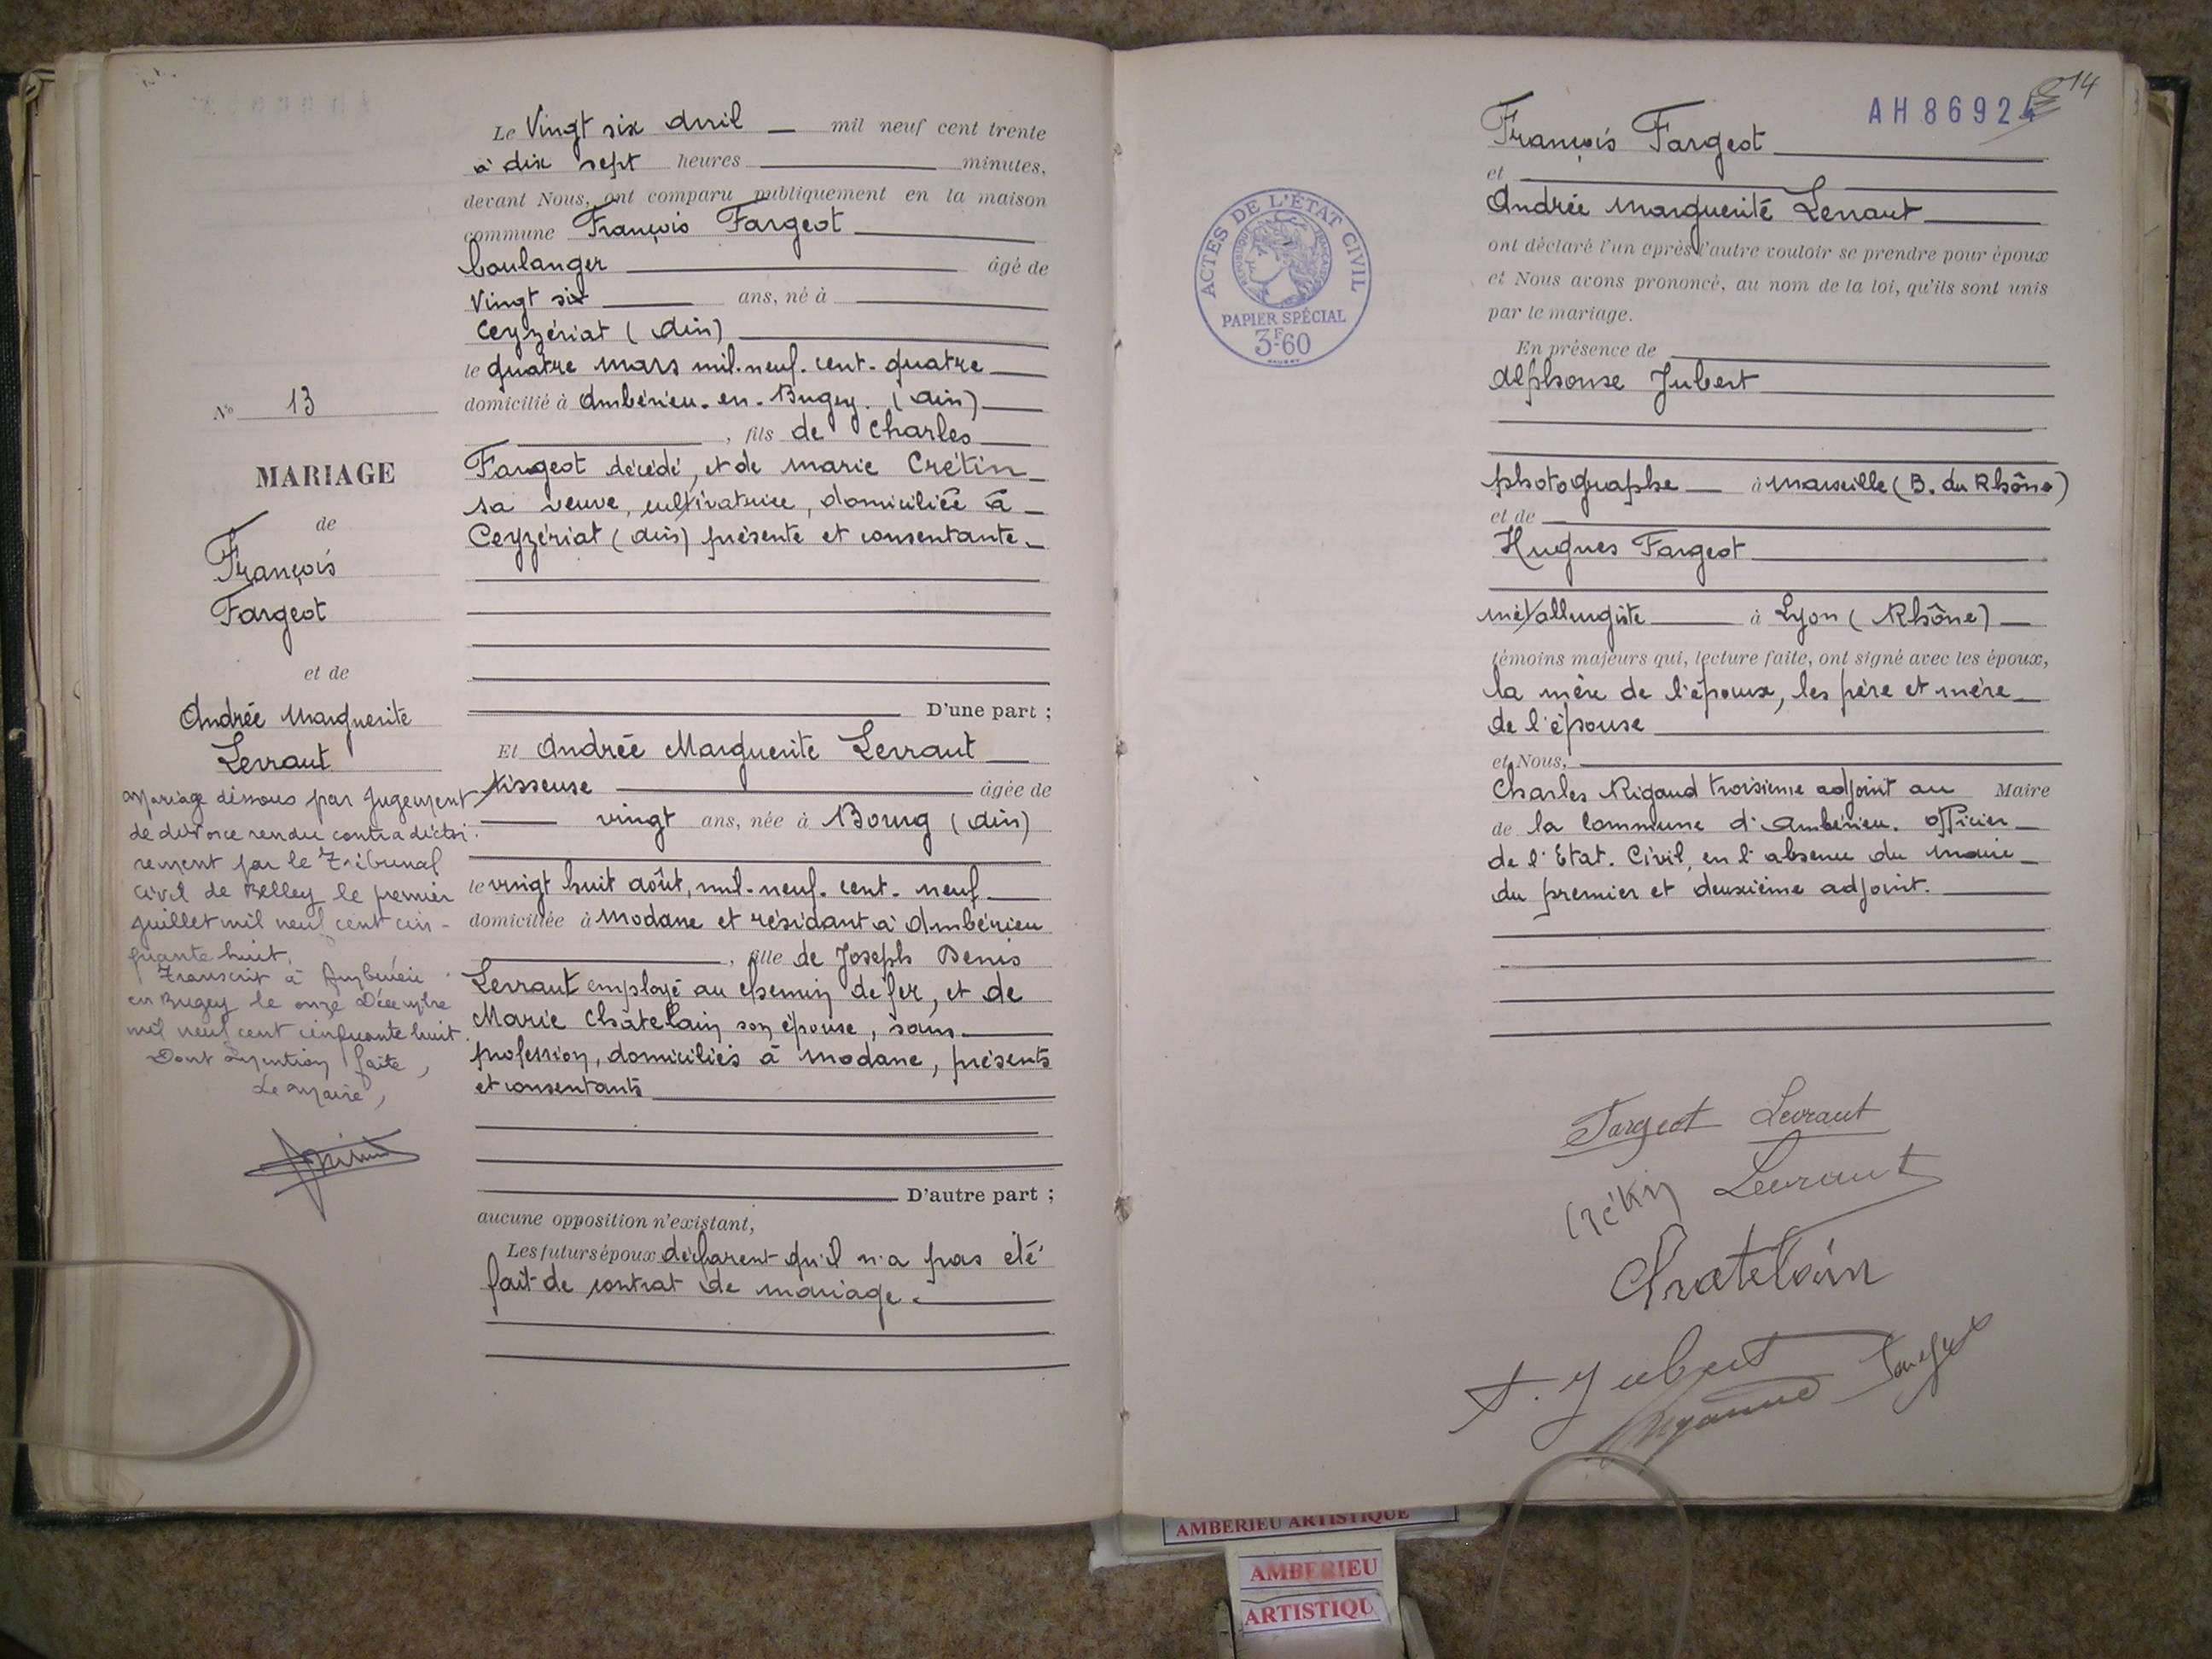 N° 13
MARIAGE
de
François
Fargeot
et de
Andrée Marguerite
Levraut
Mariage dissous par Jugement
de divorce rendu contradictoi-
rement par le Tribunal
Civil de Belley le premier
juillet mil neuf cent cin-
quante huit.
Transcrit à Ambérieu
en Bugey le onze Décembre
mil neuf cent cinquante huit.
Dont mention faite,
Le Maire,
Le Vingt six Avril mil neuf cent trente
à dix sept heures minutes,
devant Nous, ont comparu publiquement en la maison
commune François Fargeot
boulanger âgé de
Vingt six ans, né à
Ceyzériat (Ain)
le quatre mars mil-neuf-cent-quatre
domicilié à Ambérieu-en-Bugey. (Ain)
, fils de Charles
Fargeot décédé, et de Marie Crétin
sa veuve, cultivatrice, domiciliée à
Ceyzériat (Ain) présente et consentante.
D'une part ;
Et Andrée Marguerite Levraut
tisseuse âgée de
vingt ans, née à Bourg (Ain)
le vingt huit août, mil-neuf-cent-neuf
domiciliée à Modane et résidant à Ambérieu
, fille de Joseph Denis
Levraut employé au chemin de fer, et de
Marie Chatelain son épouse, sans
profession, domiciliés à Modane, présents
et consentants
D'autre part ;
aucune opposition n'existant,
Les futurs époux déclarent qu'il n'a pas été
fait de contrat de mariage.
14
AH 86924
François Fargeot
et
Andrée Marguerite Levraut
ont déclaré l'un après l'autre vouloir se prendre pour époux
et Nous avons prononcé, au nom de la loi, qu'ils sont unis
par le mariage.
En présence de
Alphonse Jubert
photographe à Marseille (B. du Rhône)
et de
Hugues Fargeot
métallurgiste à Lyon (Rhône)
témoins majeurs qui, lecture faite, ont signé avec les époux,
la mère de l'époux, les père et mère
de l'épouse
et Nous,
Charles Rigaud troisième adjoint au Maire
de la Commune d'Ambérieu. Officier
de l'Etat. Civil, en l'absence du Maire
du premier et deuxième adjoint.
ACTES DE L'ÉTAT CIVIL
RÉPUBLIQUE FRANÇAISE
PAPIER SPÉCIAL
3F-60
Fargeot Levraut
Crétin Levraut
Chatelain
A. Jubert
Fargeot
AMBERIEU ARTISTIQUE
AMBERIEU
ARTISTIQU